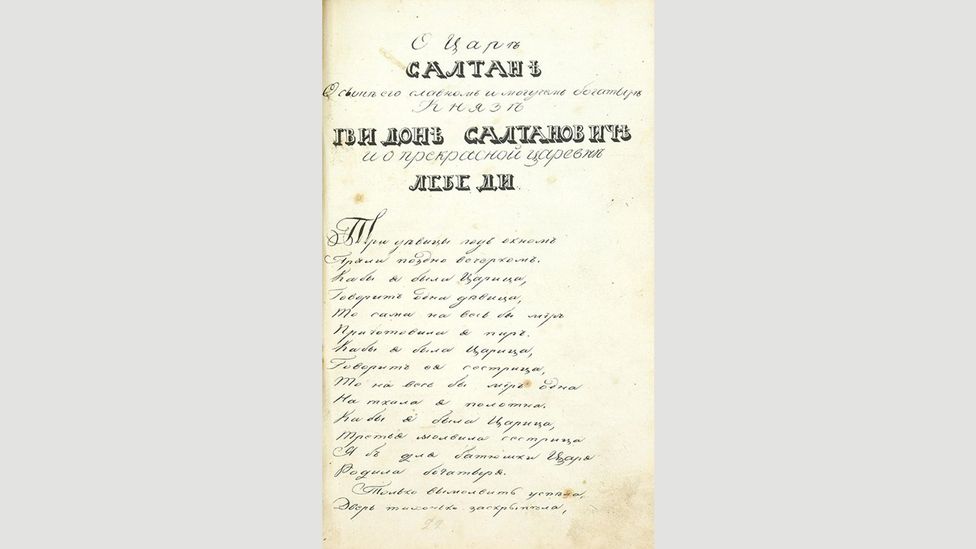 О Царѣ
САЛТАНѢ
О сынѣ его славномъ и могучемъ богатырѣ
Князѣ
ГВИДОНѢ САЛТАНОВИЧѢ
и о прекрасной царевнѣ
ЛЕБЕДИ
Три дѣвицы подъ окномъ
Пряли поздно вечеркомъ.
Кабы я была Царица,
Говоритъ одна дѣвица,
То сама на весь бы міръ
Приготовила я пиръ.
Кабы я была Царица,
Говоритъ ея сестрица,
То на весь бы міръ одна
Наткала я полотна.
Кабы я была Царица,
Третья молвила сестрица
Я бъ для батюшки Царя
Родила богатыря.
Только вымолвить успѣла,
Дверь тихонько заскрыпѣла,